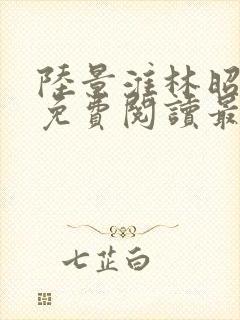 陸景淮林昭
免費閱讀最
七芷白